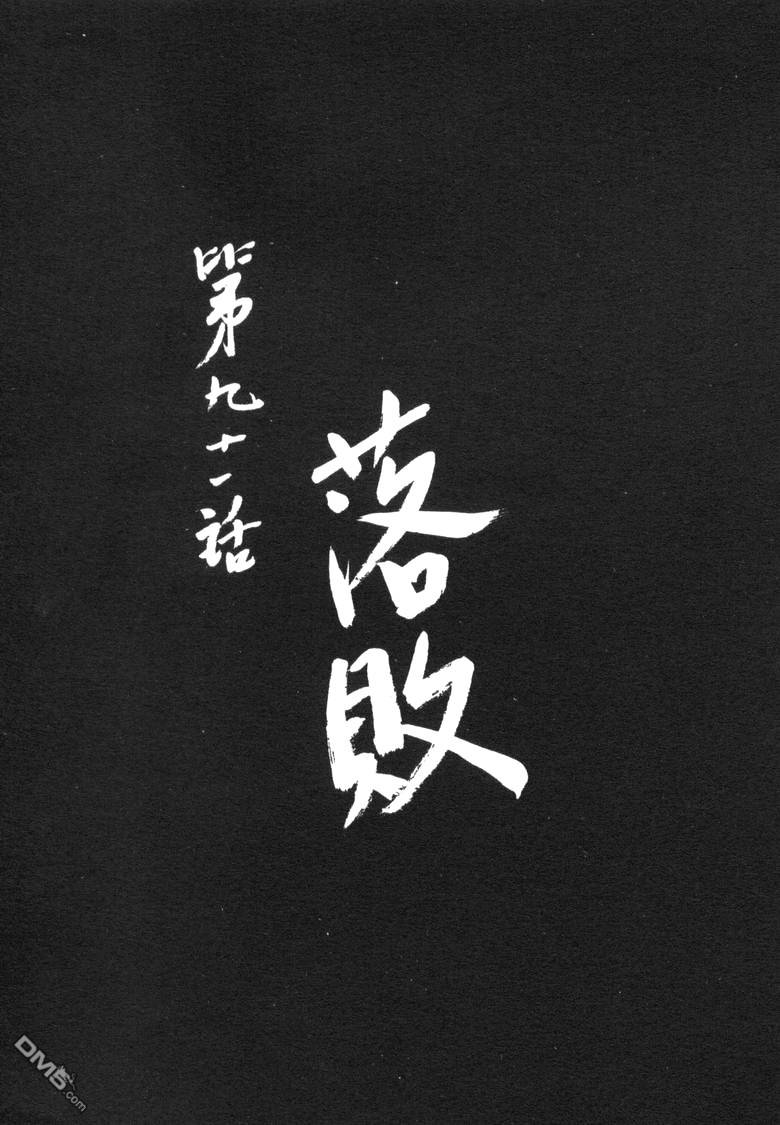 第九十一話
落敗
DM5.com